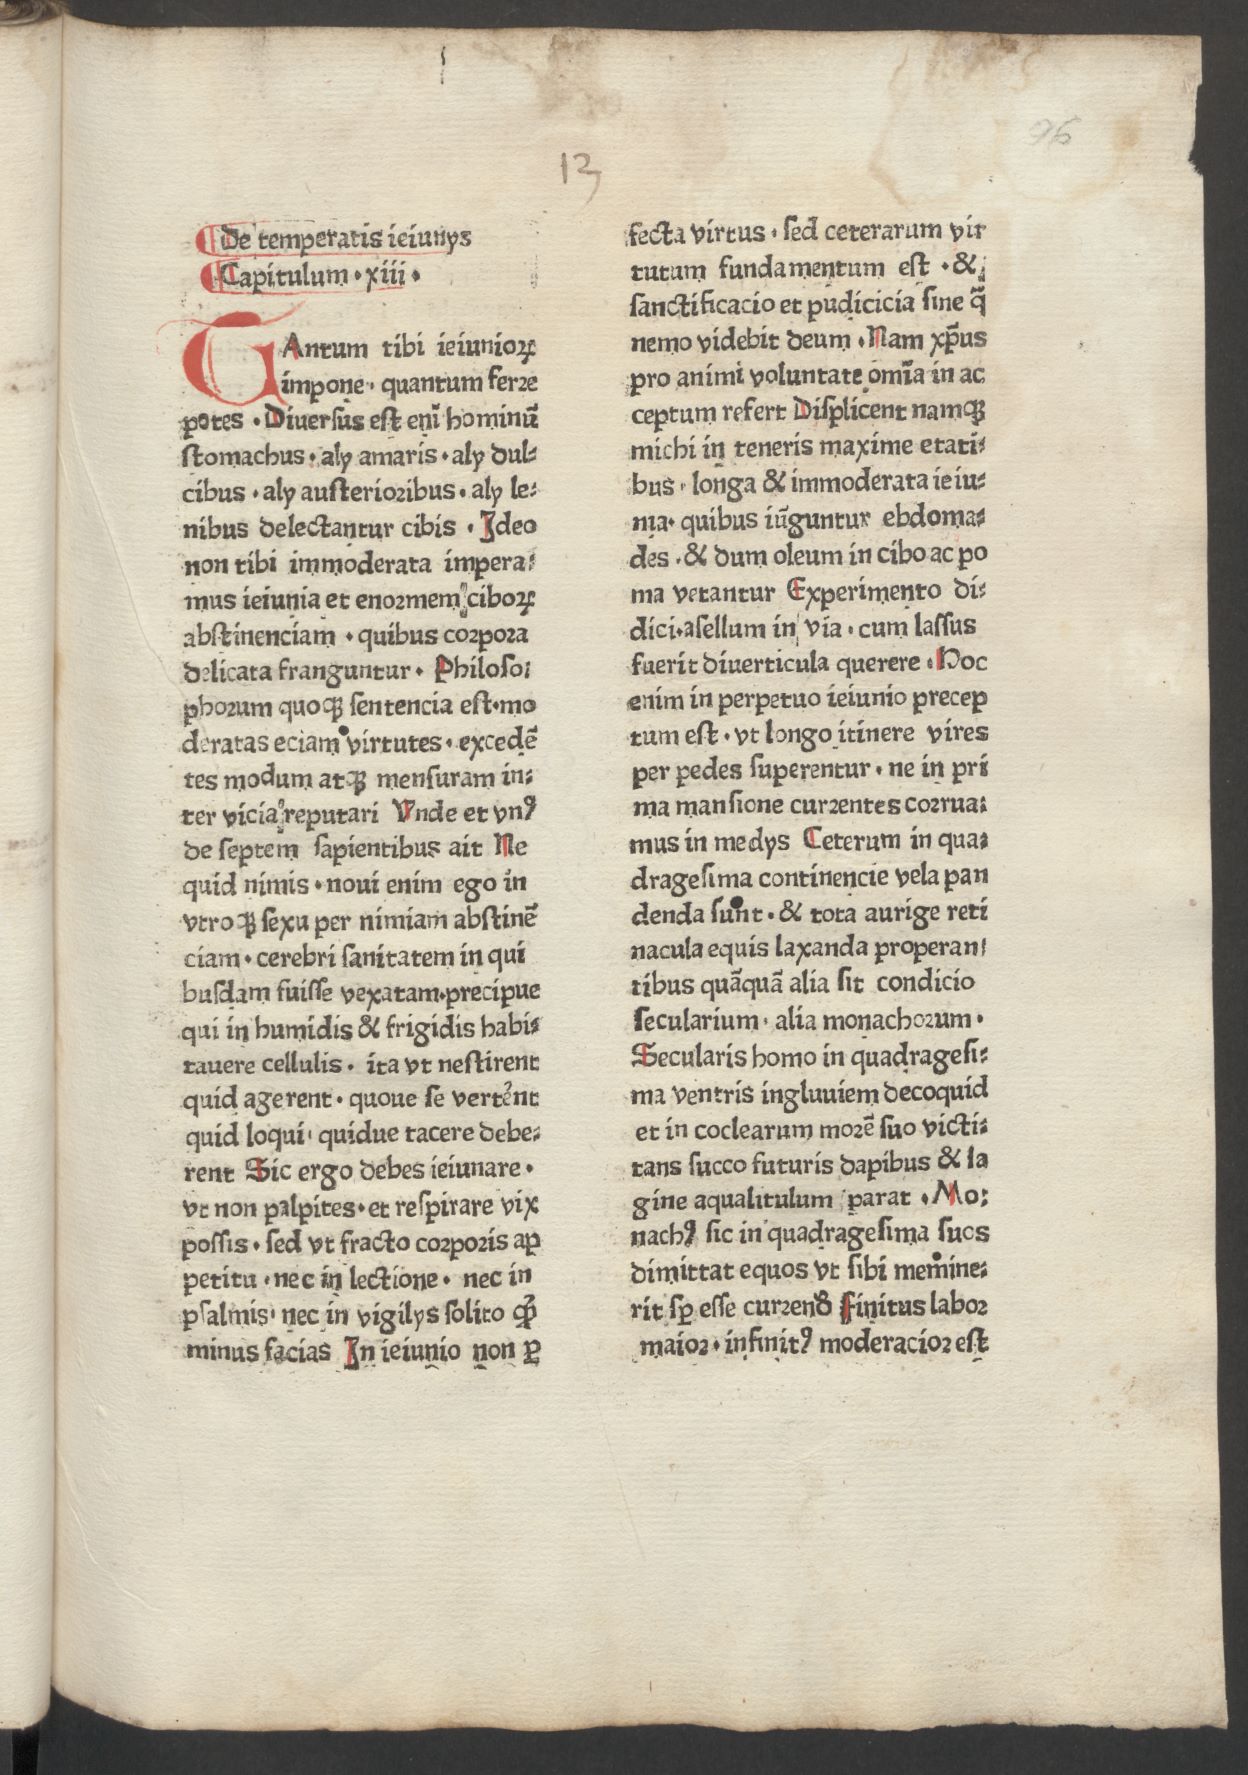 13
96
De temperatis ieiunijs
Capitulum · xiii ·
TAntum tibi ieiunioꝝ
impone · quantum ferre
potes · Diuersus est eni̅ hominu̅
stomachus · alij amaris · alij dul⸗
cibus · alij austerioribus · alij le⸗
nibus delectantur cibis · Ideo
non tibi immoderata impera⸗
mus ieiunia et enormem ciboꝝ
abstinenciam · quibus corpora
delicata franguntur · Philoso⸗
phorum quoqꝫ sentencia est · mo
deratas eciam virtutes · excede̅
tes modum atqꝫ mensuram in⸗
ter vicia reputari Vnde et vnꝰ
de septem sapientibus ait Ne
quid nimis · noui enim ego in
vtroqꝫ sexu per nimiam abstine̅
ciam · cerebri sanitatem in qui
busdam fuisse vexatam · precipue
qui in humidis & frigidis habi⸗
tauere cellulis · ita vt nestirent
quid agerent · quoue se verte̅nt
quid loqui · quidue tacere debe⸗
rent Sic ergo debes ieiunare ·
vt non palpites · et respirare vix
possis · sed vt fracto corporis ap
petitu · nec in lectione · nec in
psalmis · nec in vigilijs solito qꝫ̅
minus facias In ieiunio non ꝑ
fecta virtus · sed ceterarum vir
tutum fundamentum est · &
sanctificacio et pudicicia sine q̅
nemo videbit deum · Nam xp̅us
pro animi voluntate omi̅a in ac
ceptum refert Displicent namqꝫ
michi in teneris maxime etati⸗
bus · longa & immoderata ieiu⸗
nia · quibus iu̅guntur ebdoma⸗
des · & dum oleum in cibo ac po
ma vetantur Experimento di⸗
dici · asellum in via · cum lassus
fuerit diuerticula querere · Hoc
enim in perpetuo ieiunio precep
tum est · vt longo itinere vires
per pedes superentur · ne in pri
ma mansione currentes corrua⸗
mus in medijs Ceterum in qua⸗
dragesima continencie vela pan
denda sunt · & tota aurige reti
nacula equis laxanda properan⸗
tibus qua̅qua̅ alia sit condicio
secularium · alia monachorum ·
Secularis homo in quadragesi⸗
ma ventris ingluuiem decoquid
et in coclearum more̅ suo victi⸗
tans succo futuris dapibus & la
gine aqualitulum parat · Mo⸗
nachꝰ sic in quadragesima suos
dimittat equos vt sibi memine⸗
rit sp̅ esse curren̅d Finitus labor
maior · infinitꝰ moderacior est